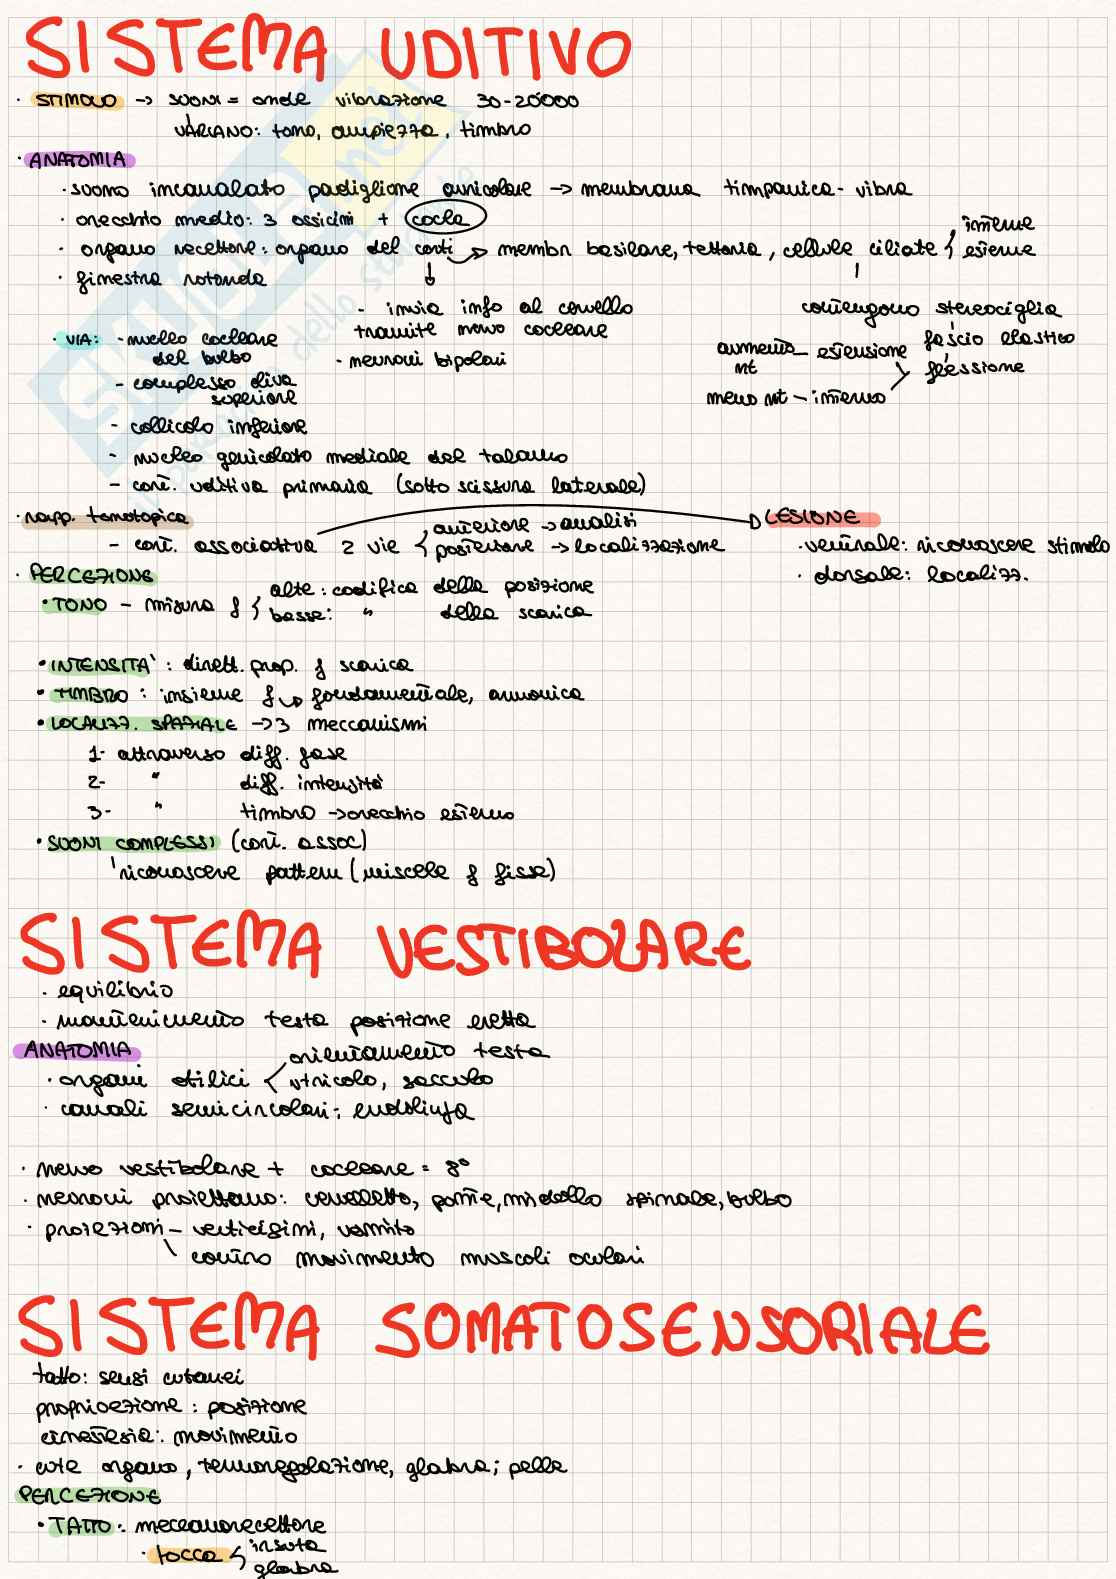 SISTEMA UDITIVO
· STIMOLO -> suoni = onde vibrazione 30-20000
VARIANO: tono, ampiezza, timbro
· ANATOMIA
· suono incanalato padiglione auricolare -> membrana timpanica - vibra
· orecchio medio: 3 ossicini + coclea
· organo recettore: organo del corti -> membr basilare, tettoria, cellule ciliate { interne
esterne
· finestra rotonda
- invia info al cervello
tramite nervo cocleare
- neuroni bipolari
contengono stereociglia
fascio elastico
aumento nt - estensione
flessione
meno nt - interno
· VIA: - nucleo cocleare
del bulbo
- complesso oliva
superiore
- collicolo inferiore
- nucleo genicolato mediale del talamo
- cort. uditiva primaria (sotto scissura laterale)
· rapp. tonotopica
- cort. associativa 2 vie { anteriore -> analisi
posteriore -> localizzazione
LESIONE
· ventrale: riconoscere stimolo
· dorsale: localizz.
· PERCEZIONE
• TONO - misura f { alte: codifica della posizione
basse: " della scarica
• INTENSITA': dirett. prop. f scarica
• TIMBRO: insieme f -> fondamentale, armonica
• LOCALIZZ. SPAZIALE -> 3 meccanismi
1- attraverso diff. fase
2- " diff. intensità
3- " timbro -> orecchio esterno
• SUONI COMPLESSI (cort. assoc)
riconoscere pattern (miscele f fisse)
SISTEMA VESTIBOLARE
· equilibrio
· mantenimento testa posizione eretta
ANATOMIA
· organi otilici < orientamento testa
utricolo, sacculo
· canali semicircolari: endolinfa
· nervo vestibolare + cocleare = 8°
· neuroni proiettano: cervelletto, ponte, midollo spinale, bulbo
· proiezioni - vertigini, vomito
\ contro movimento muscoli oculari
SISTEMA SOMATOSENSORIALE
tatto: sensi cutanei
propriocezione: posizione
cinestesia: movimento
· cute organo, termoregolazione, glabra; pelle
PERCEZIONE
• TATTO: meccanorecettore
· tocco < irsuta
glabra